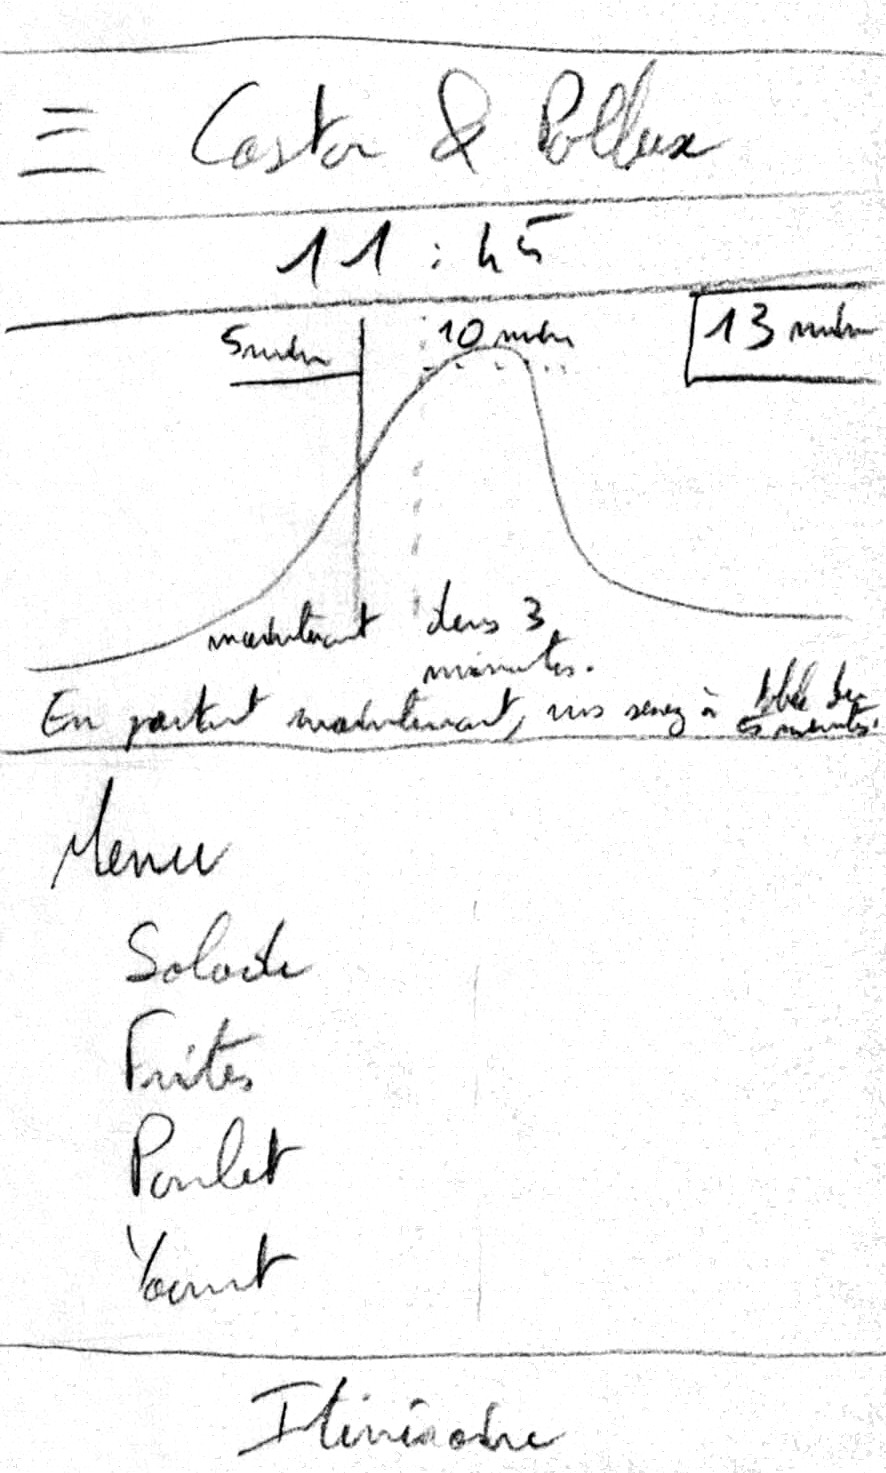 Castor & Pollux
11:45
5 min
10 min
13 min
maintenant
dans 3
minutes.
En partant maintenant, vous serez à table dans
5 minutes.
Menu
Salade
Frites
Poulet
Yaourt
Itinéraire